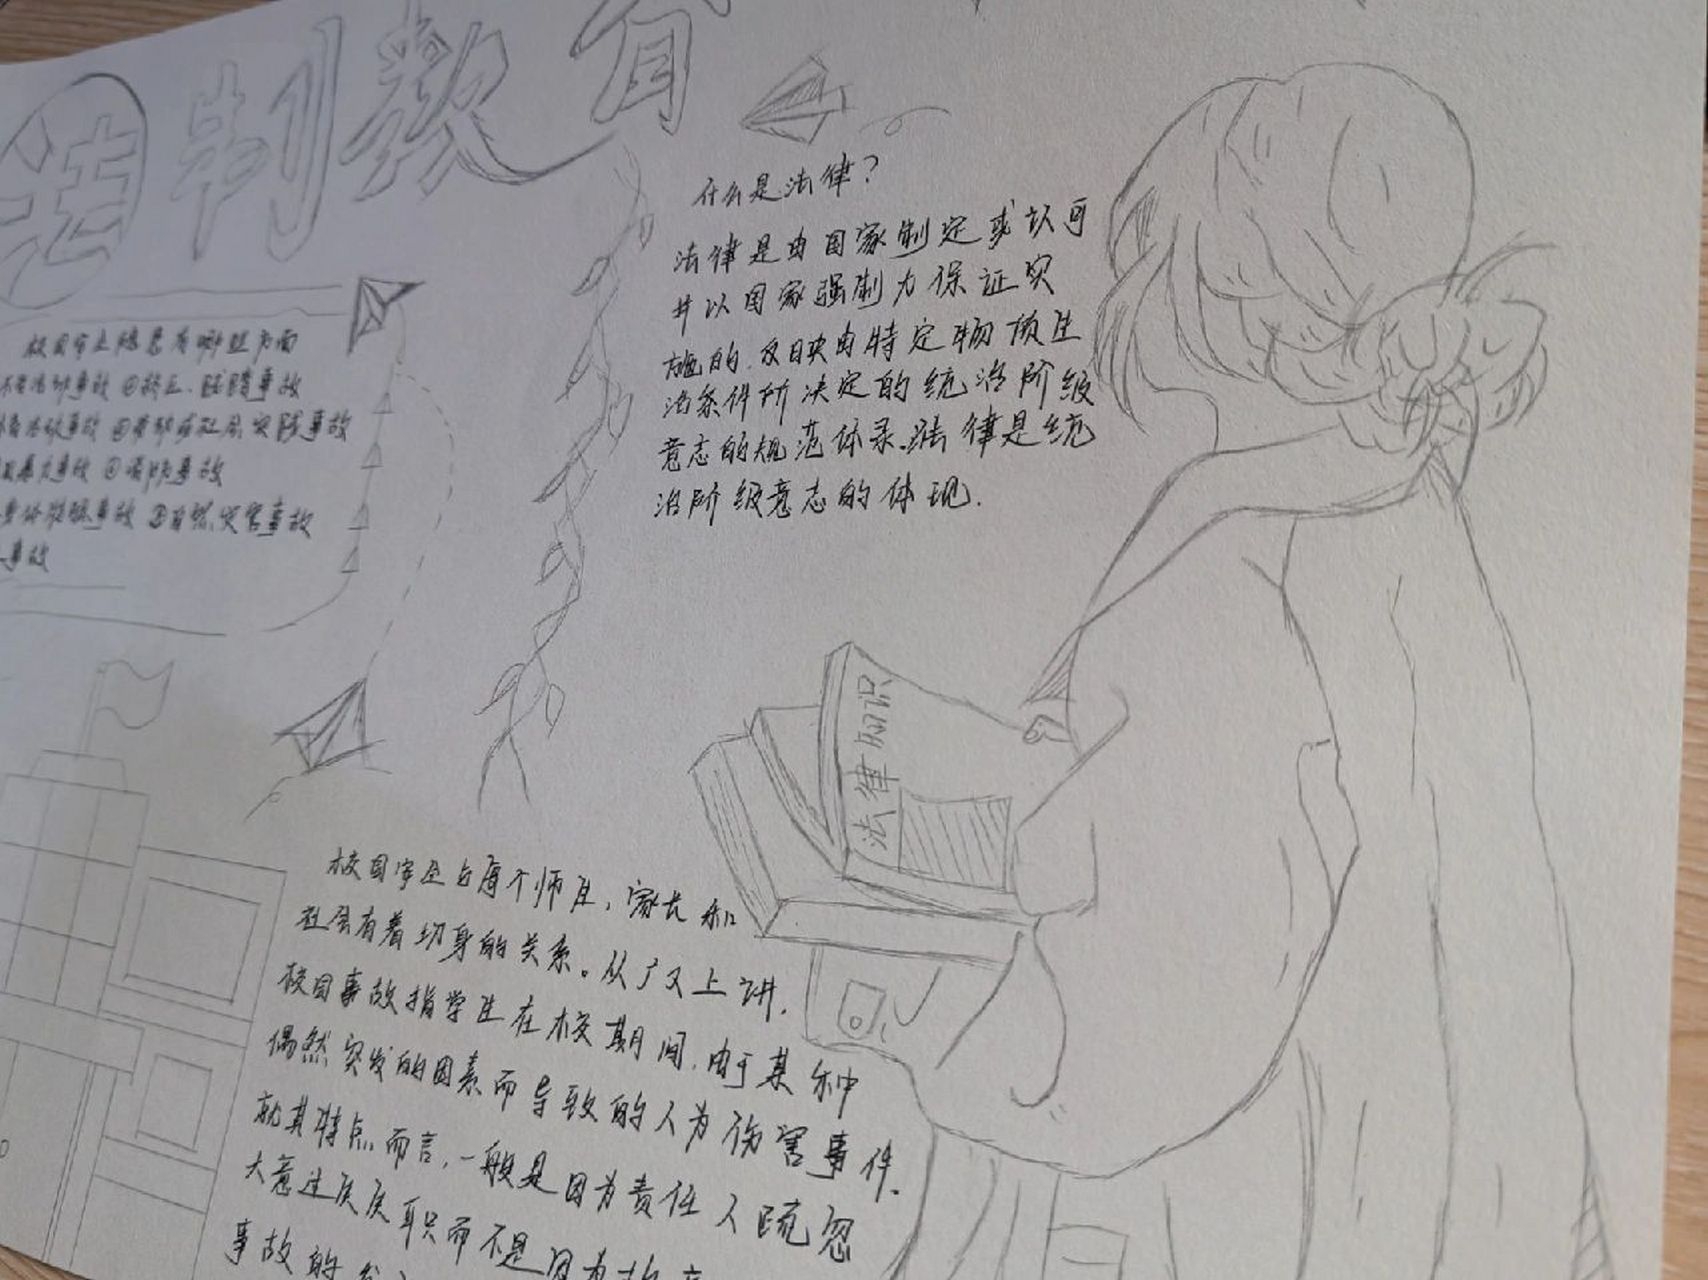 法制教育
什么是法律?
法律是由国家制定或认可
并以国家强制力保证实
施的,反映由特定物质生
活条件所决定的统治阶级
意志的规范体录.法律是统
治阶级意志的体现.
校园安全隐患有哪些方面
事故 ②挤压、踩踏事故
事故
事故 ⑧自然灾害事故
事故
法律知识
校园安全与每个师生,家长和
社会有着切身的关系。从广义上讲.
校园事故指学生在校期间.由于某种
偶然突发的因素而导致的人为伤害事件.
就其特点而言,一般是因为责任人疏忽
大意过 职而不是因为
事故的